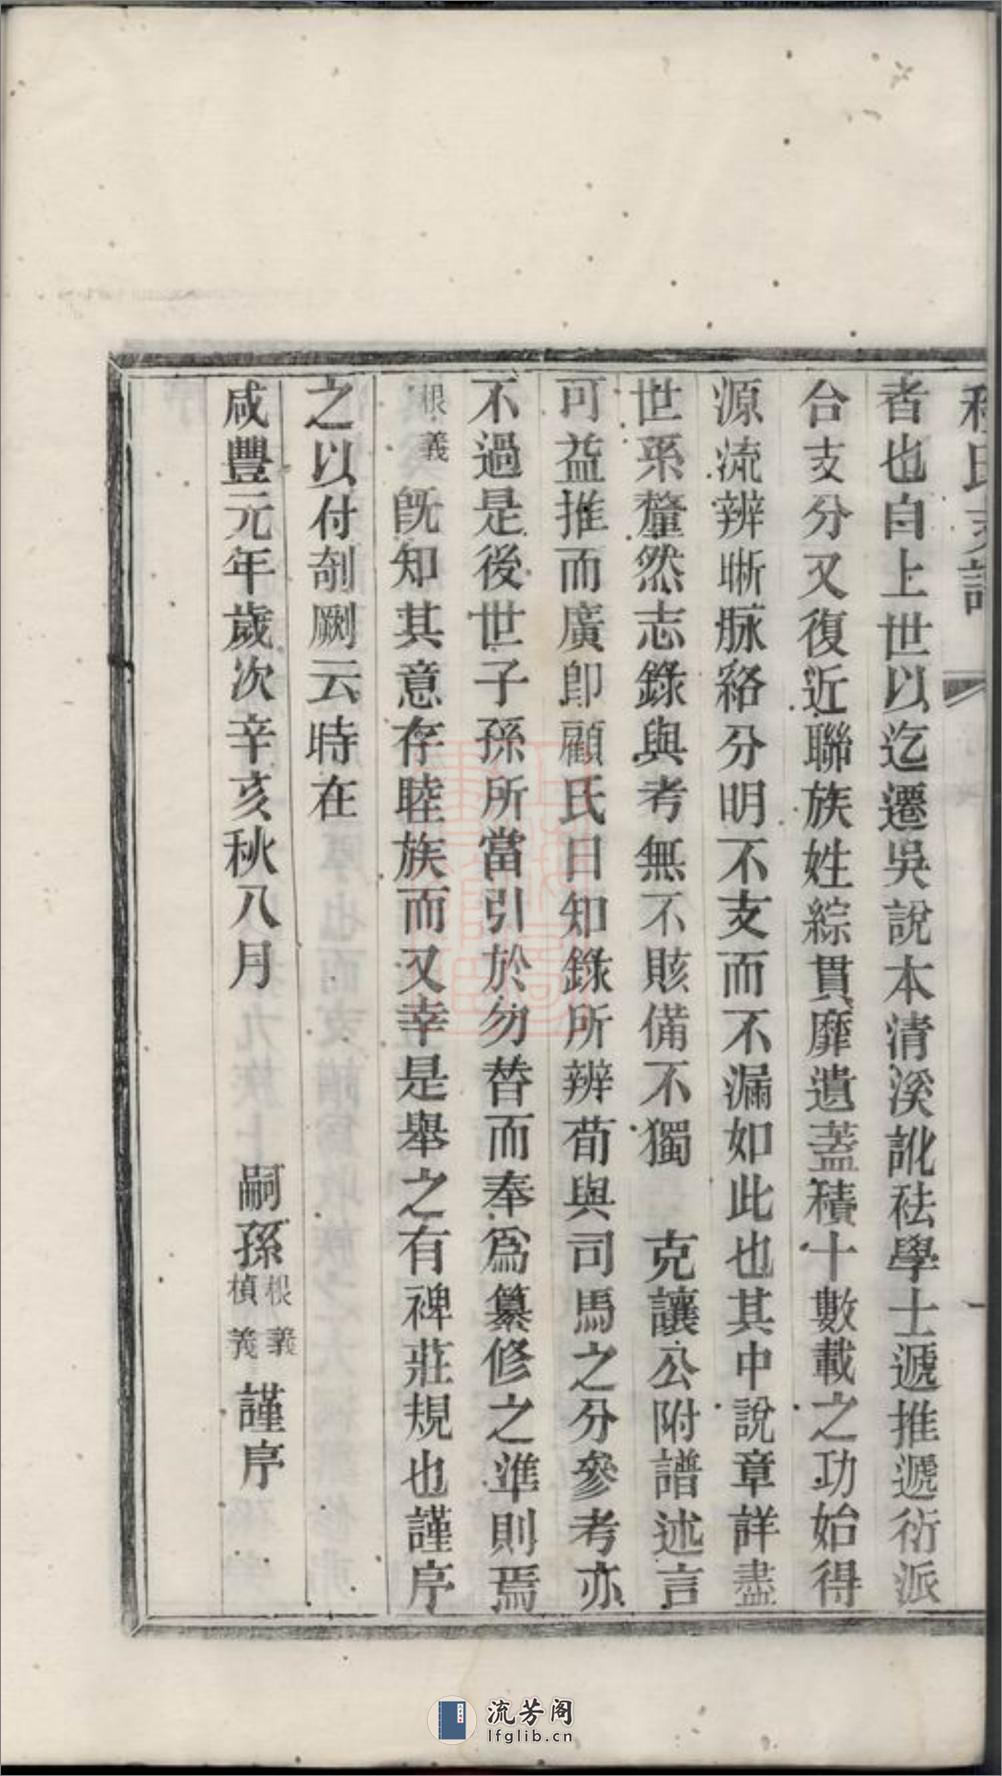 程氏支譜
一
者也自上世以迄遷吳說本清溪訛祛學士遞推遞衍派
合支分又復近聯族姓綜貫靡遺蓋積十數載之功始得
源流辨晰脉絡分明不支而不漏如此也其中說章詳盡
世系釐然志錄與考無不賅備不獨 克讓公附譜述言
可益推而廣卽顧氏日知錄所辨荀與司馬之分參考亦
不過是後世子孫所當引於勿替而奉爲纂修之準則焉
根義旣知其意存睦族而又幸是舉之有裨莊規也謹序
之以付剞劂云時在
咸豐元年歲次辛亥秋八月
嗣孫根義楨義謹序
流芳阁
lfglib.cn